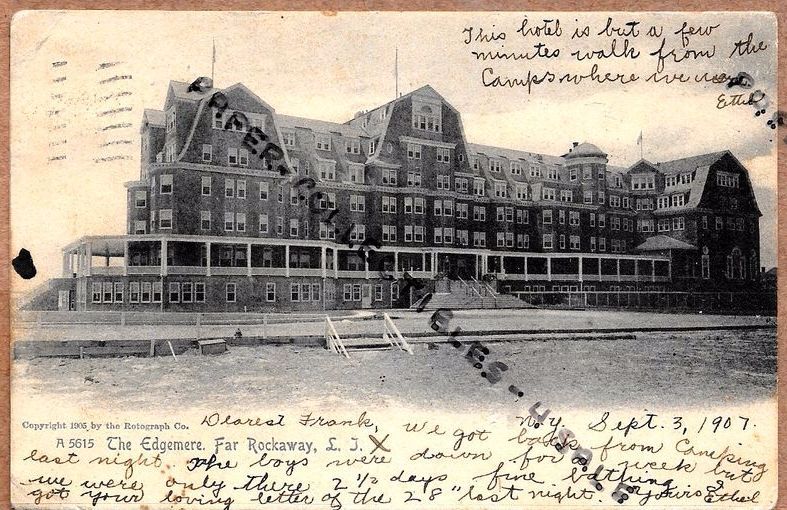 This hotel is but a few
minutes walk from the
Camps where we were
Ethel
PAPER-COLLECTIBLES-4-SALE
Copyright 1905 by the Rotograph Co.
A 5615 The Edgemere. Far Rockaway, L. I. X
Dearest Frank, N.Y. Sept. 3, 1907.
We got back from Camping
last night. The boys were down for a week but
we were only there 2 1/2 days fine bathing
got your loving letter of the 28" last night. Yours Ethel